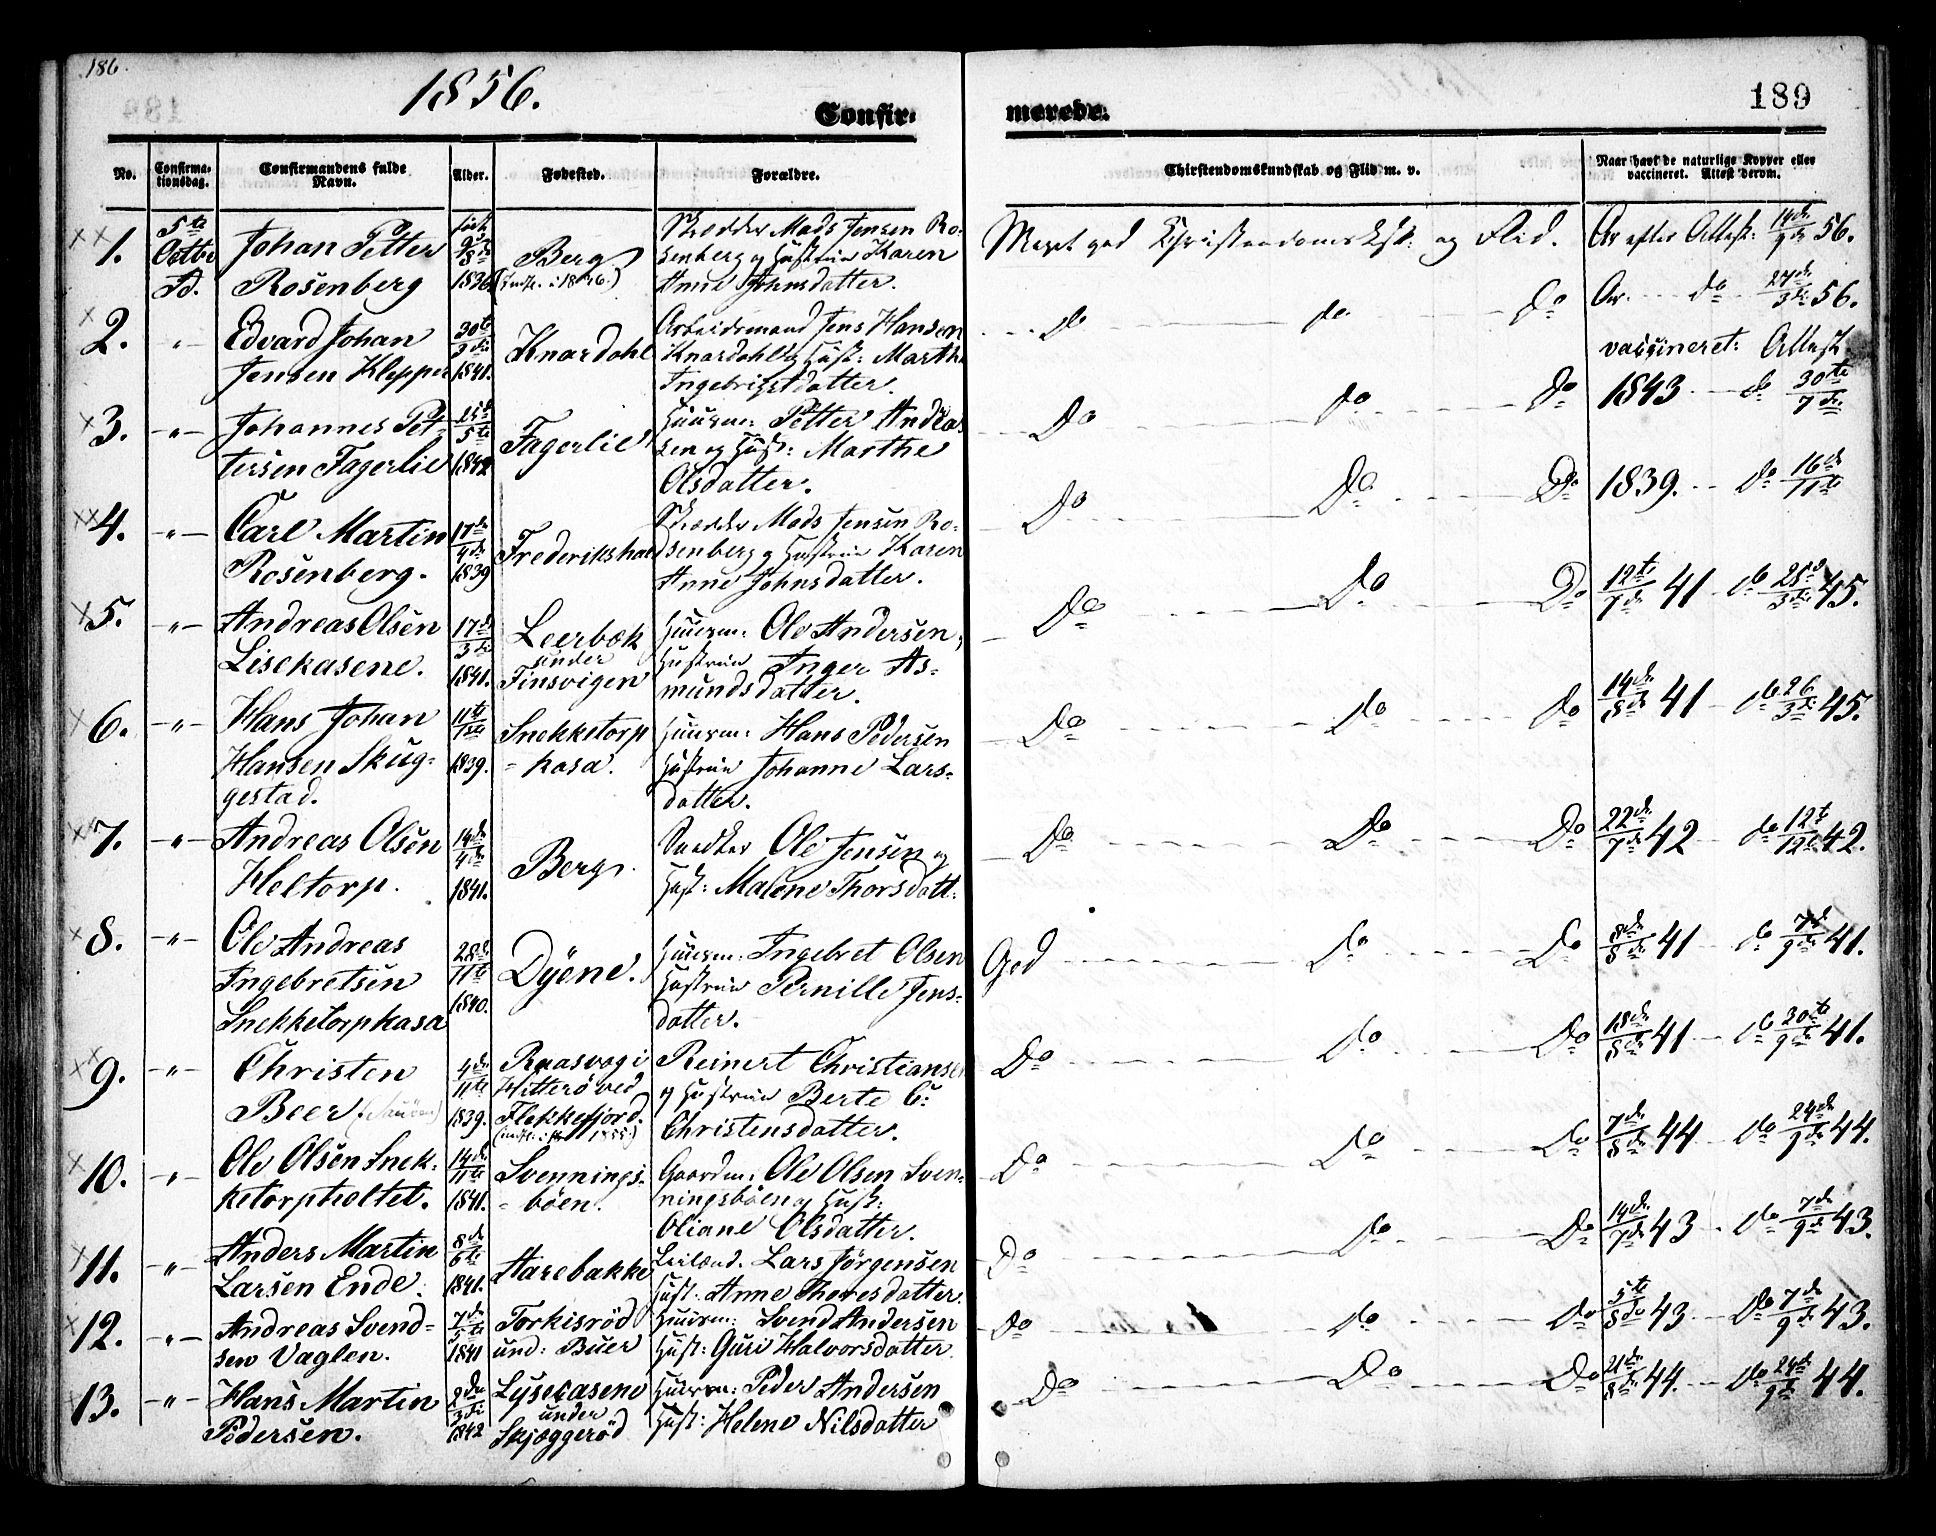 186.
1856.
Confir-
merede.
189
No.
Confirma-
tionsdag.
Confirmandens fulde
Navn.
Alder.
Fødested.
Forældre.
Chirstendomskundskab og Flid m. v.
Naar havt de naturlige Kopper eller
vaccineret. Attest derom.
1. 5te Octbr Johan Petter Rosenberg født 1836 Berg (indfl. i 1846.) Skrædder Mads Jensen Ro-
senberg og Hustrue Karen
Anne Johnsdatter.
Meget god Christendomsksk: og Flid. Ar efter Attest: 14de/9de 56.
2. " Edvard Johan
Jensen Klepper 30te/3die 1841. Knardahl Arbeidsmand Jens Hansen
Knardahl og Hust: Marthe
Ingebrigtsdatter.
do do do Ar. do 27de/3die 56.
vaccineret: Attest
3. " Johannes Pet-
tersen Fagerlie 15de/5te 1842 Fagerlie Huusm: Petter Andeas
sen og Hust: Marthe
Olsdatter.
Do do Do 1843 do 30te/7de
4. " Carl Martin
Rosenberg. 17de/4de 1839 Frederikshald Skrædder Mads Jensen Ro-
senberg og Hustrue Karen
Anne Johnsdatter.
Do Do Do 1839. do 16de/11te
5. " Andreas Olsen
Lisekasene. 17de/3die 1841. Leerbæk
under
Finsvigen Huusm: Ole Andersen,
Hustrue Inger As-
mundsdatter.
Do Do Do 12te/7de 41 do 25de/3die 45.
6. " Hans Johan
Hansen Skug-
gestad. 11te/1ste 1839. Snekketorp
- kasa. Huusm: Hans Pedersen
Hustrue Johanne Lars-
datter.
Do do do 14de/8de 41 do 26/3die 45.
7. " Andreas Olsen
Heltorp. 14de/4de 1841. Berg. Snedker Ole Jensen og
Hust: Malene Thorsdatt:
Do Do Do 22de/7de 42 do 12te/12te 42.
8. " Ole Andreas
Ingebretsen
Snekketorpkasa 28de/11te 1840. Dyëne. Huusm: Ingebret Olsen
Hustrue Pernille Jens-
datter.
God Do Do 8de/8de 41 do 7de/9de 41.
9. " Christen
Beer 4de/11te 1839. Raasvog i
Hitterö ved
Flekkefjord. Reinert Christiansen
og Hustrue Berte C:
Christensdatter.
Do do Do 18de/8de 41 do 30te/9de 41.
10. " Ole Olsen Snek-
ketorpholtet. 14de/11te 1841. Svennings-
- böen. Gaardm: Ole Olsen Sven-
ningsböen og Hust:
Oliane Olsdatter.
Do Do Do 7de/8de 44 do 24de/9de 44.
11. " Anders Martin
Larsen Ende. 8de/6te 1841. Aarebakke Leilænd. Lars Jörgensen
Hust: Anne Thoresdatter.
Do Do Do 14de/7de 43 do 7de/9de 43.
12. " Andreas Svend-
sen Vaglen. 7de/5te 1841 Torkisröd
und: Buer Huusm: Svend Andersen
Hust: Guri Halvorsdatter.
Do do Do 5te/8de 43 Do 7de/9de 43.
13. " Hans Martin
Pedersen. 2den/3die 1842 Lysekasene
under
Skjæggeröd Huusm: Peder Andersen
Hust: Helene Nilsdatter
Do Do Do 21de/8de 44. do 24de/9de 44.